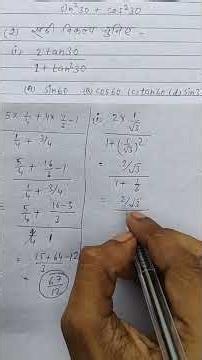 sin²30 + cos²30
(2) सही विकल्प चुनिए -
i) 2 tan30
1 + tan²30
(A) sin60 (B) cos60 (C) tan60 (d) sin3
5 × 1/4 + 4 × 4/3 - 1
1/4 + 3/4
5/4 + 16/3 - 1
1/4 + 3/4
5/4 + 16-3/3
4/4 1
= 15 + 64 - 12
= 67/12
i) 2 × 1/√3
1 + (1/√3)²
= 2/√3
1 + 1/3
= 2/√3